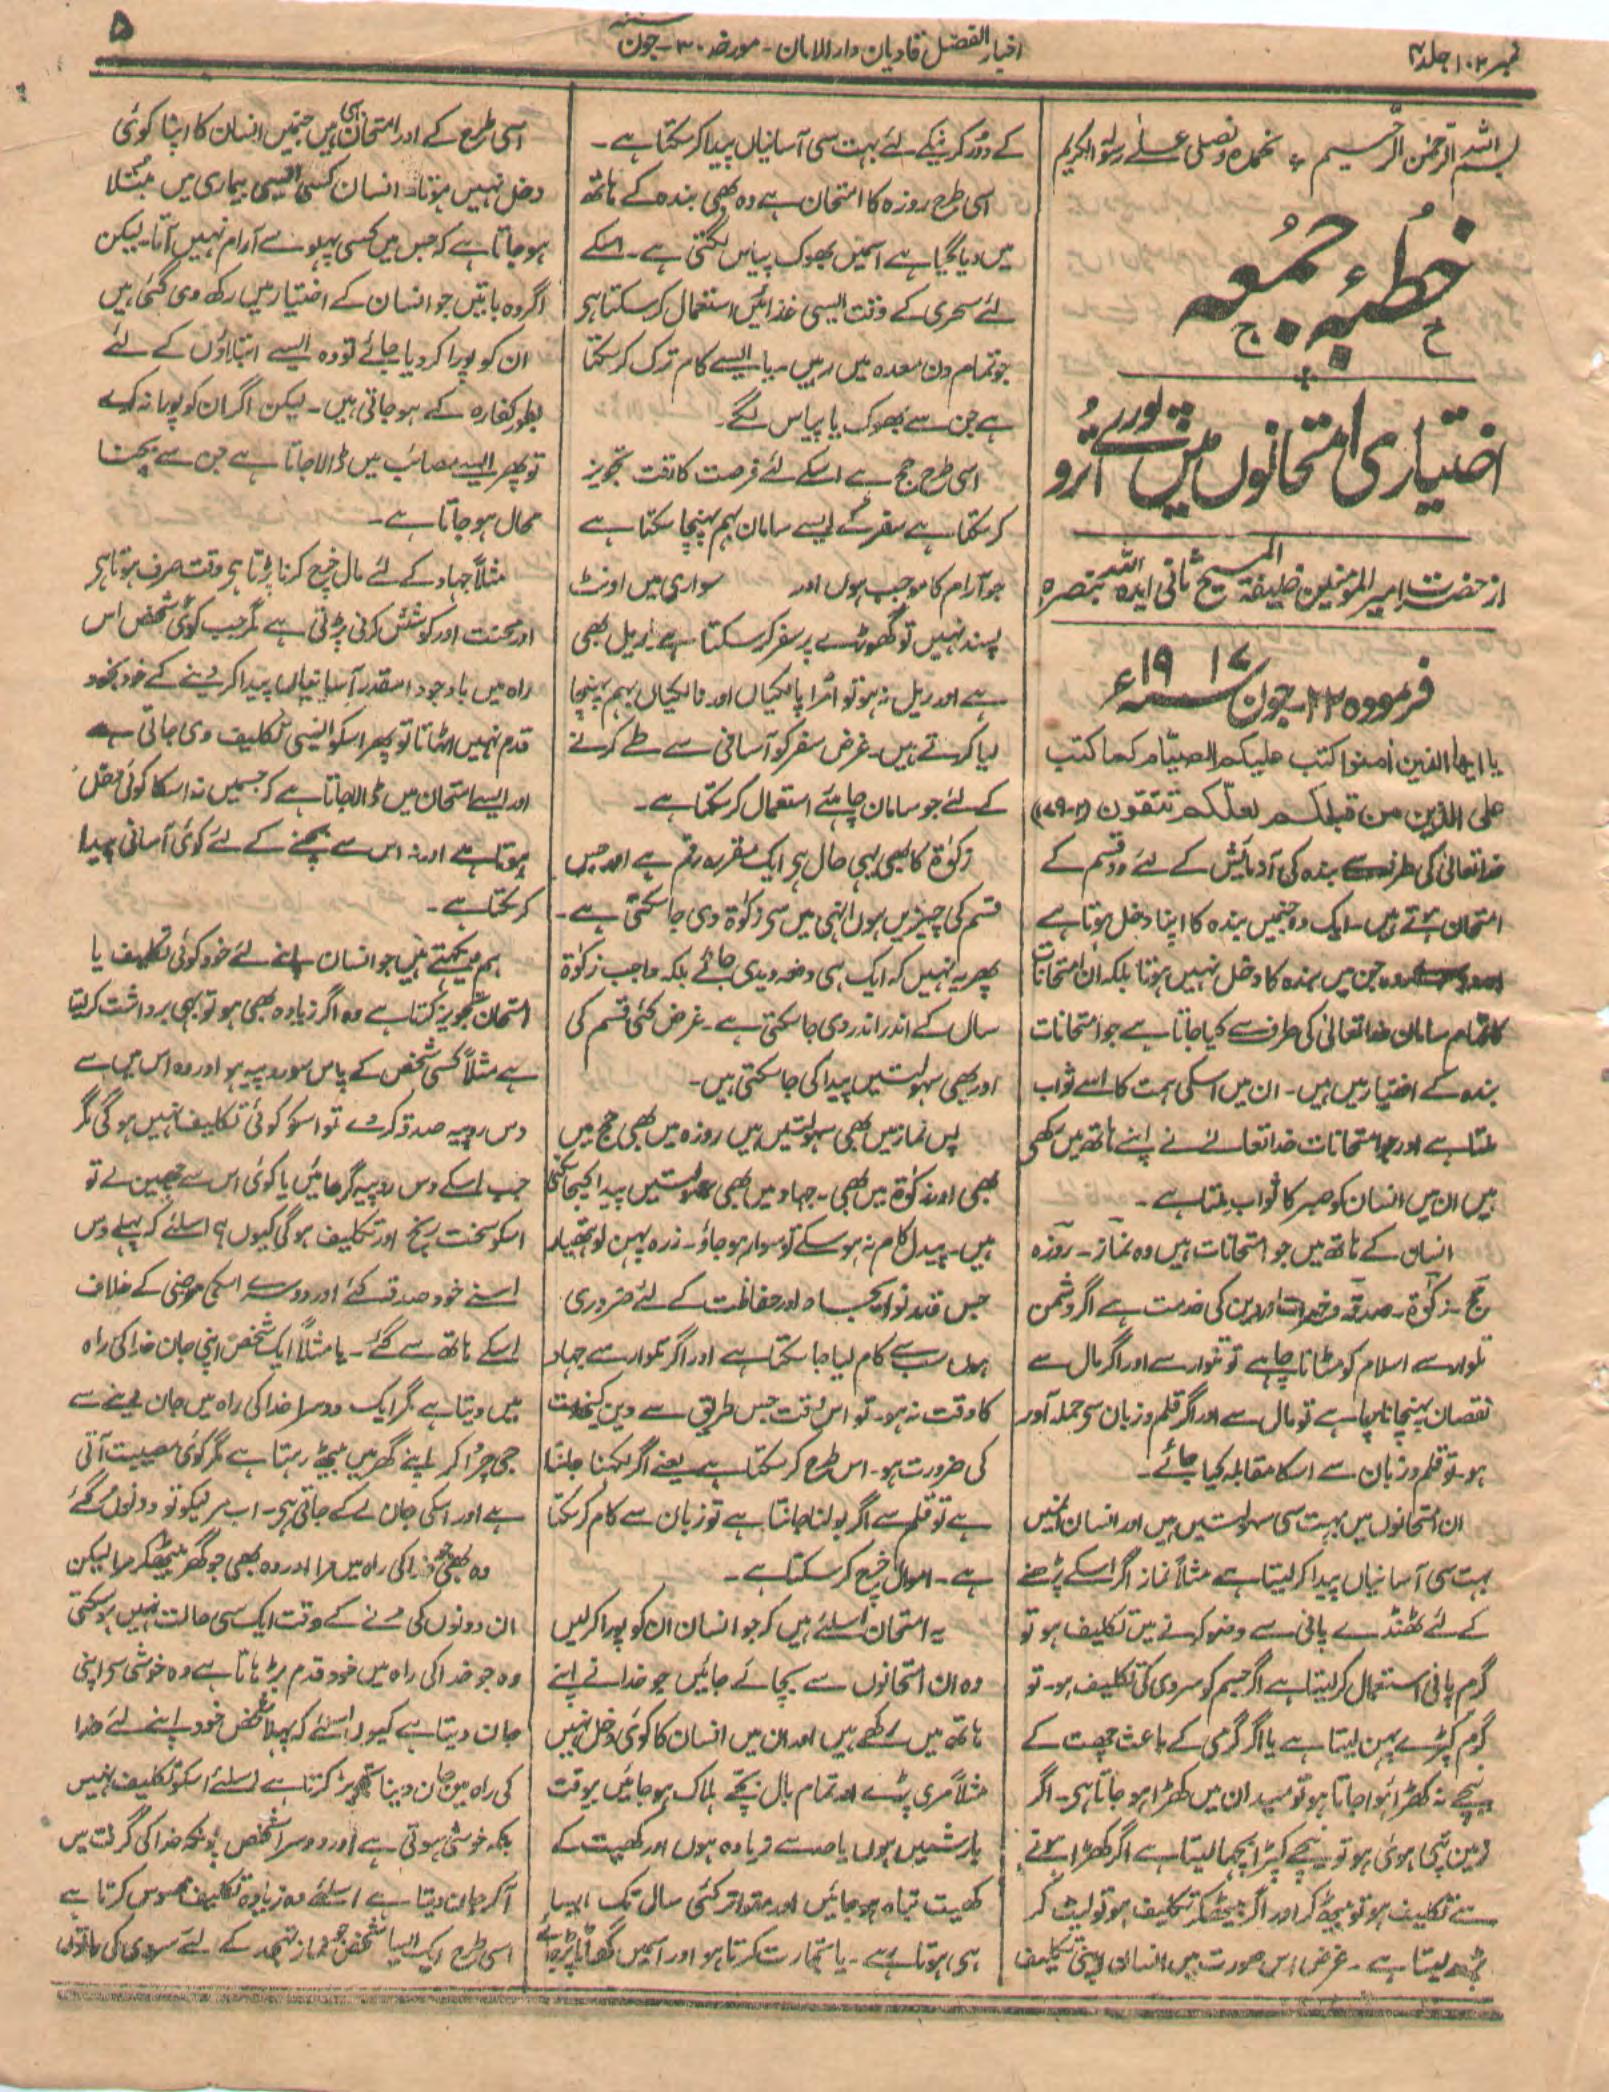 نمبر ۱۰۲ جلد ۴
اخبار الفضل قادیان دار الامان - مورخہ ۳۰ - جون
۵
بسم اللہ الرحمٰن الرحیم نحمدہ و نصلی علےٰ رسولہ الکریم
خطبہ جمعہ
اختیاری امتحانوں میں پورے اُترو
از حضرت امیر المومنین خلیفۃ المسیح ثانی ایدہ اللہ بنصرہ
فرمودہ ۲۲ - جون ۱۹۱۷ء
یا ایھا الذین اٰمنوا کتب علیکم الصیام کما کتب
علی الذین من قبلکم لعلکم تتقون
خدا تعالیٰ کی طرف سے بندہ کی آزمائیش کے لئے دو قسم کے
امتحان ہوتے ہیں - ایک وہ جنمیں بندہ کا اپنا دخل ہوتا ہے
وہ جن میں بندہ کا دخل نہیں ہوتا بلکہ ان امتحانات
کا تمام سامان خدا تعالیٰ کی طرف سے کیا جاتا ہے جو امتحانات
بندہ کے اختیار میں ہیں - ان میں اسکی ہمت کا اسے ثواب
ملتا ہے اور جو امتحانات خدا تعالےٰ نے اپنے ہاتھ میں رکھے
ہیں ان میں انسان کو صبر کا ثواب ملتا ہے -
انسان کے ہاتھ میں جو امتحانات ہیں وہ نماز - روزہ
حج - زکوٰۃ - صدقہ و خیرات اور دین کی خدمت ہے اگر دشمن
تلوار سے اسلام کو مٹانا چاہے تو تلوار سے اور اگر مال سے
نقصان پہنچانا چاہے تو مال سے اور اگر قلم و زبان سے حملہ آور
ہو - تو قلم و زبان سے اسکا مقابلہ کیا جائے -
ان امتحانوں میں بہت سی سہولتیں ہیں اور انسان انمیں
بہت سی آسانیاں پیدا کر لیتا ہے مثلاً نماز اگر اسکے پڑھنے
کے لئے ٹھنڈے پانی سے وضو کرنے میں تکلیف ہو تو
گرم پانی استعمال کر لیتا ہے اگر جسم کو سردی کی تکلیف ہو - تو
گرم کپڑے پہن لیتا ہے یا اگر گرمی کے باعث چھت کے
نیچے نہ کھڑا ہوا جاتا ہو تو میدان میں کھڑا ہو جاتا ہے - اگر
زمین تپی ہوئی ہو تو نیچے کپڑا بچھا لیتا ہے اگر کھڑا ہونے
سے تکلیف ہو تو بیٹھ کر اور اگر بیٹھکر تکلیف ہو تو لیٹ کر
پڑھ لیتا ہے - غرض اس صورت میں انسان اپنی تکلیف
کے دور کرنیکے لئے بہت سی آسانیاں پیدا کر سکتا ہے -
اسی طرح روزہ کا امتحان ہے وہ بھی بندہ کے ہاتھ
میں دیا گیا ہے اسمیں بھوک پیاس لگتی ہے - اسکے
لئے سحری کے وقت ایسی غذائیں استعمال کر سکتا ہے
جو تمام دن معدہ میں رہیں - یا ایسے کام ترک کر سکتا
ہے جن سے بھوک یا پیاس لگے -
اسی طرح حج ہے اسکے لئے فرصت کا وقت تجویز
کر سکتا ہے سفر کے لیسے سامان بہم پہنچا سکتا ہے
جو آرام کا موجب ہوں اور سواری میں اونٹ
پسند نہیں تو گھوڑے پر سفر کر سکتا ہے - ریل بھی
ہے اور ریل نہ ہو تو امرا پالکیاں اور نالکیاں بہم پہنچا
لیا کرتے ہیں - غرض سفر کو آسانی سے طے کرنے
کے لئے جو سامان چاہئے استعمال کر سکتا ہے -
زکوٰۃ کا بھی یہی حال ہے ایک مقررہ رقم ہے اور جس
قسم کی چیزیں ہوں انہی میں سے زکوٰۃ دی جا سکتی ہے -
پھر یہ نہیں کہ ایک ہی دفعہ دیدی جائے بلکہ واجب زکوٰۃ
سال کے اندر اندر دی جا سکتی ہے - غرض کئی قسم کی
اور بھی سہولتیں پیدا کی جا سکتی ہیں -
پس نماز میں بھی سہولتیں ہیں روزہ میں بھی حج میں
بھی اور زکوٰۃ میں بھی - جہاد میں بھی سہولتیں پیدا کیجا سکتی
ہیں - پیدل کام نہ ہو سکے تو سوار ہو جاؤ - زرہ پہن لو ہتھیار
جس قدر نو ایجاد اور حفاظت کے لئے ضروری
ہوں سب سے کام لیا جا سکتا ہے اور اگر تلوار سے جہاد
کا وقت نہ ہو - تو اس وقت جس طریق سے دین کیخدمت
کی ضرورت ہو - اس طرح کر سکتا ہے یعنے اگر لکھنا جانتا
ہے تو قلم سے اگر بولنا جانتا ہے تو زبان سے کام کر سکتا
ہے - اموال خرچ کر سکتا ہے -
یہ امتحان اسلئے ہیں کہ جو انسان ان کو پورا کر لیں
وہ ان امتحانوں سے بچائے جائیں جو خدا نے اپنے
ہاتھ میں رکھے ہیں اور ان میں انسان کا کوئی دخل نہیں
مثلاً مری پڑے اور تمام بال بچے ہلاک ہو جائیں بیوقت
بارشیں ہوں یا حد سے زیادہ ہوں اور کھیت کے
کھیت تباہ ہو جائیں اور متواتر کئی سال تک ایسا
ہی ہوتا ہے - یا تجارت کرتا ہو اور اسمیں گھاٹا پڑ جائے
اسی طرح کے اور امتحان ہیں جنمیں انسان کا اپنا کوئی
دخل نہیں ہوتا - انسان کسی ایسی بیماری میں مبتلا
ہو جاتا ہے کہ جس میں کسی پہلو سے آرام نہیں آتا - لیکن
اگر وہ باتیں جو انسان کے اختیار میں رکھ دی گئی ہیں
ان کو پورا کر دیا جائے تو وہ ایسے ابتلاؤں کے لئے
بطور کفارہ کے ہو جاتی ہیں - لیکن اگر ان کو پورا نہ کرے
تو پھر ایسے مصائب میں ڈالا جاتا ہے جن سے بچنا
محال ہو جاتا ہے -
مثلاً جہاد کے لئے مال خرچ کرنا پڑتا ہے وقت صرف ہوتا ہے
اور محنت اور کوشش کرنی پڑتی ہے مگر جب کوئی شخص اس
راہ میں باوجود اسقدر آسانیاں پیدا کر دینے کے خود بخود
قدم نہیں اٹھاتا تو پھر اسکو ایسی تکلیف دی جاتی ہے
اور ایسے امتحان میں ڈالا جاتا ہے کہ جسمیں نہ اسکا کوئی دخل
ہوتا ہے اور نہ اس سے بچنے کے لئے کوئی آسانی پیدا
کر سکتا ہے -
ہم دیکھتے ہیں جو انسان اپنے لئے خود کوئی تکلیف یا
امتحان تجویز کرتا ہے وہ اگر زیادہ بھی ہو تو بھی برداشت کر لیتا
ہے مثلاً کسی شخص کے پاس سو روپیہ ہو اور وہ اس میں سے
دس روپیہ صدقہ کر دے تو اسکو کوئی تکلیف نہیں ہوگی مگر
جب اسکے دس روپیہ گر جائیں یا کوئی اس سے چھین لے تو
اسکو سخت رنج اور تکلیف ہوگی کیوں؟ اسلئے کہ پہلے دس
اسنے خود صدقہ کئے اور دوسرے اسکی مرضی کے خلاف
اسکے ہاتھ سے گئے - یا مثلاً ایک شخص اپنی جان خدا کی راہ
میں دیتا ہے مگر ایک دوسرا خدا کی راہ میں جان دینے سے
جی چرا کر اپنے گھر میں بیٹھے رہتا ہے مگر کوئی مصیبت آتی
ہے اور اسکی جان لے کے جاتی ہے - اب مر لیکو تو دونوں مر گئے
وہ بھی جو خدا کی راہ میں مرا اور وہ بھی جو گھر بیٹھکر مرا لیکن
ان دونوں کی مرنے کے وقت ایک سی حالت نہیں ہو سکتی
وہ جو خدا کی راہ میں خود قدم بڑھاتا ہے وہ خوشی سے اپنی
جان دیتا ہے کیوں اسلئے کہ پہلا شخص خود اپنے لئے خدا
کی راہ میں جان دینا تجویز کرتا ہے اسلئے اسکو تکلیف نہیں
بلکہ خوشی ہوتی ہے اور دوسرا شخص چونکہ خدا کی گرفت میں
آ کر جان دیتا ہے اسلئے وہ زیادہ تکلیف محسوس کرتا ہے
اسی طرح ایک ایسا شخص جو نماز تہجد کے لئے سردی کی راتوں